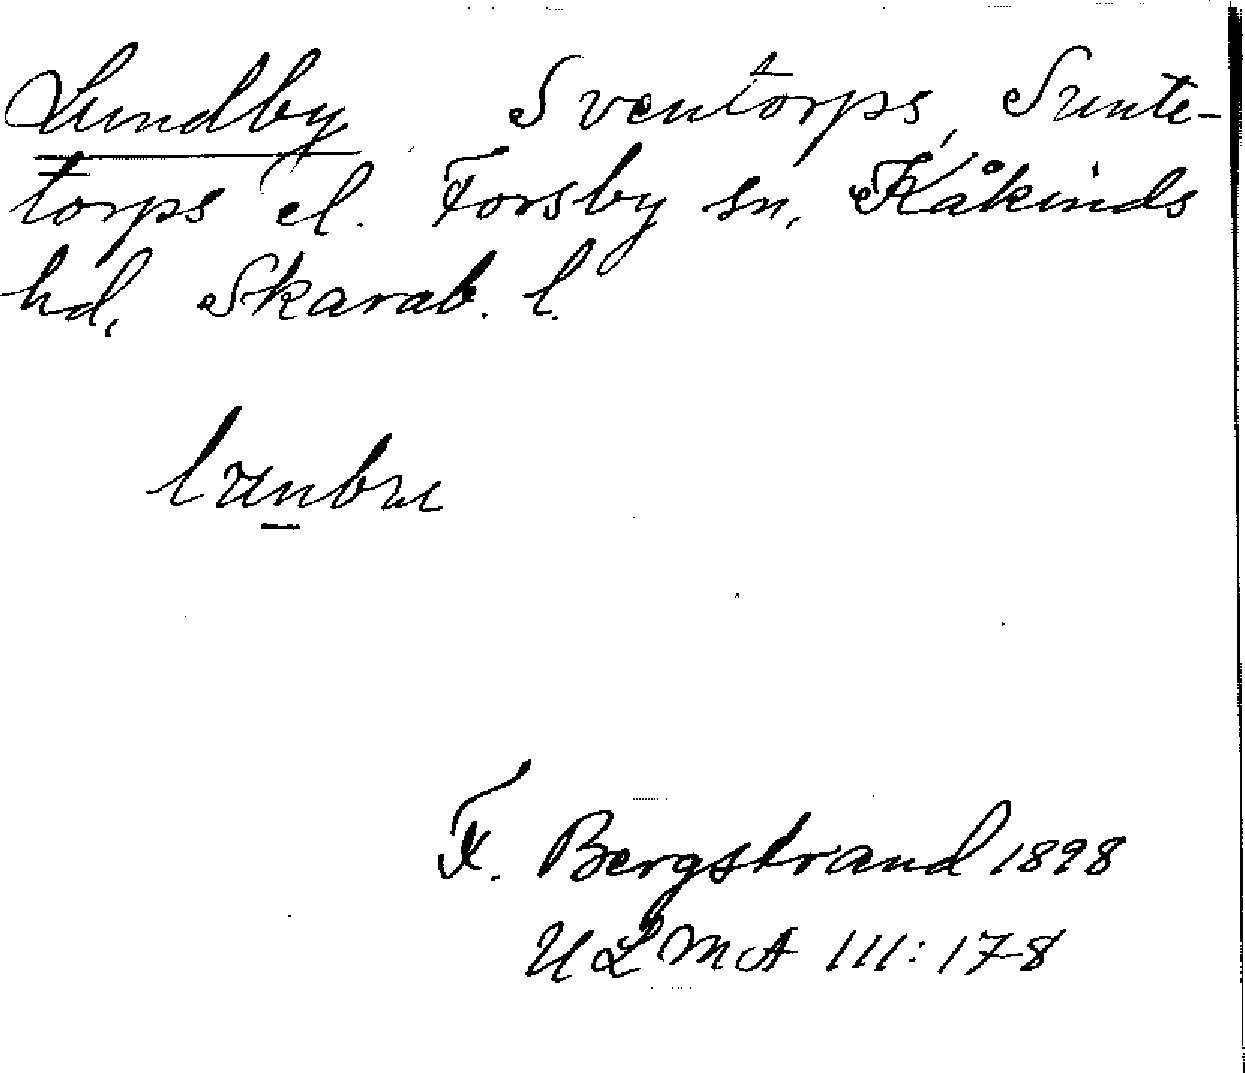 Lundby Sventorps, Sunte-
torps el. Forsby sn, Kåkinds
hd, Skarab. l.
lunbu
F. Bergstrand 1898
ULMA 111:178